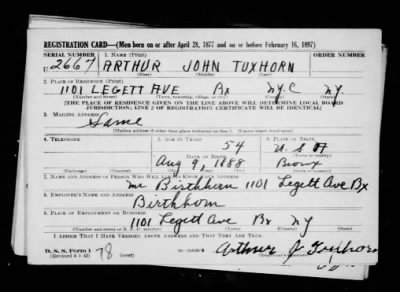 REGISTRATION CARD—(Men born on or after April 28, 1877 and on or before February 16, 1897)
SERIAL NUMBER 1. NAME (Print)
U 2667 ARTHUR JOHN TUXHORN
(First) (Middle) (Last)
2. PLACE OF RESIDENCE (Print)
1101 LEGETT AVE Bx NYC NY
(Number and street) (Town, township, village, or city) (County) (State)
[THE PLACE OF RESIDENCE GIVEN ON THE LINE ABOVE WILL DETERMINE LOCAL BOARD
JURISDICTION; LINE 2 OF REGISTRATION CERTIFICATE WILL BE IDENTICAL]
3. MAILING ADDRESS
Same
[Mailing address if other than place indicated on line 2. If same insert word same]
4. TELEPHONE 5. AGE IN YEARS 6. PLACE OF BIRTH
54 U S A
DATE OF BIRTH
Aug 9, 1888 Bronx
7. NAME AND ADDRESS OF PERSON WHO WILL ALWAYS KNOW YOUR ADDRESS
Mr Birthhorn 1101 Legett Ave Bx
8. EMPLOYER'S NAME AND ADDRESS
Birthhorn
9. PLACE OF EMPLOYMENT OR BUSINESS
1101 Legett Ave Bx NY
(Number and street or R. F. D. number) (Town) (County) (State)
I AFFIRM THAT I HAVE VERIFIED ABOVE ANSWERS AND THAT THEY ARE TRUE.
D. S. S. Form 1 Arthur J Tuxhorn
(Revised 4-1-42) (over) 78